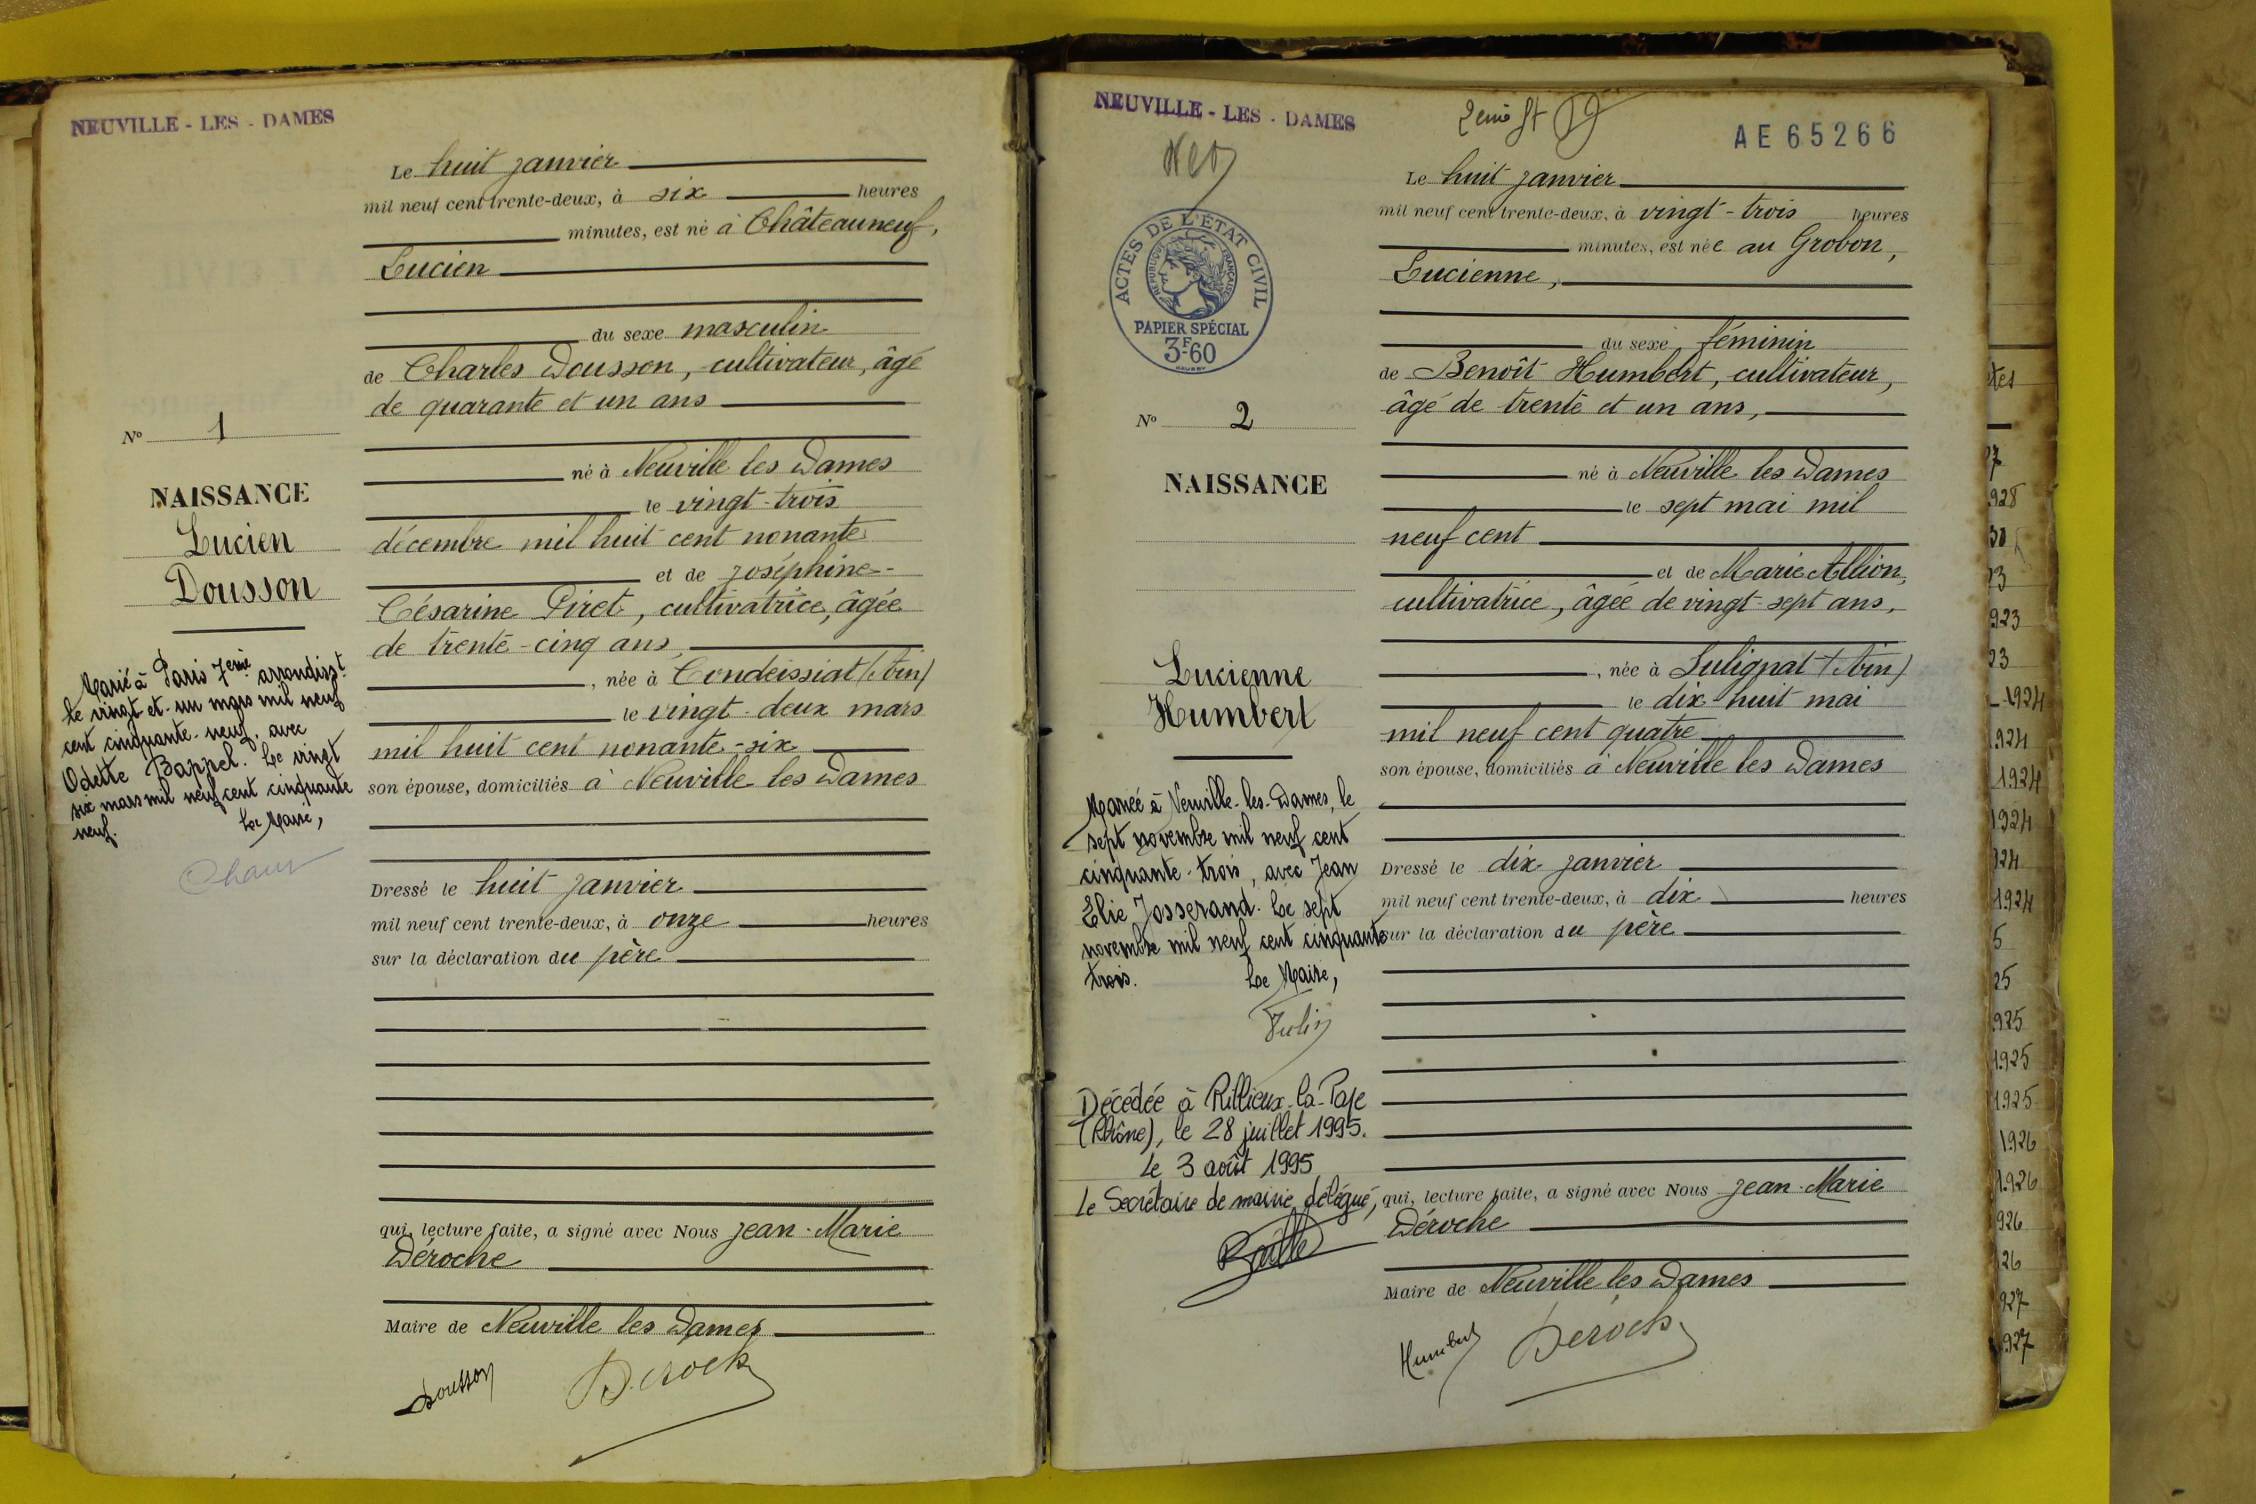 NEUVILLE - LES - DAMES
Le huit janvier
mil neuf cent trente-deux, à six heures
minutes, est né à Châteauneuf,
Lucien
du sexe masculin
de Charles Dousson, cultivateur, âgé
de quarante et un ans
né à Neuville les Dames
le vingt-trois
décembre mil huit cent nonante
et de Joséphine-
Césarine Piret, cultivatrice, âgée
de trente-cinq ans
, née à Condeissiat (Ain)
le vingt-deux mars
mil huit cent nonante-six
son épouse, domiciliés à Neuville les Dames
Dressé le huit janvier
mil neuf cent trente-deux, à onze heures
sur la déclaration du père
qui, lecture faite, a signé avec Nous Jean-Marie
Déroche
Maire de Neuville les Dames
Dousson
Déroche
No 1
NAISSANCE
Lucien
Dousson
Marié à Paris 7eme arrondisst
le vingt-et-un mars mil neuf
cent cinquante-neuf, avec
Odette Bappel. Le vingt
six mars mil neuf cent cinquante
neuf. Le Maire,
NEUVILLE - LES - DAMES
AE 65266
Le huit janvier
mil neuf cent trente-deux, à vingt-trois heures
minutes, est née au Grobon,
Lucienne,
du sexe féminin
de Benoît Humbert, cultivateur,
âgé de trente et un ans,
né à Neuville les Dames
le sept mai mil
neuf cent
et de Marie Allion,
cultivatrice, âgée de vingt-sept ans,
, née à Sulignat (Ain)
le dix-huit mai
mil neuf cent quatre
son épouse, domiciliés à Neuville les Dames
Dressé le dix janvier
mil neuf cent trente-deux, à dix heures
sur la déclaration du père
qui, lecture faite, a signé avec Nous Jean-Marie
Déroche
Maire de Neuville les Dames
Humbert
Déroche
ACTES DE L'ÉTAT CIVIL
RÉPUBLIQUE FRANÇAISE
PAPIER SPÉCIAL
3F60
No 2
NAISSANCE
Lucienne
Humbert
Mariée à Neuville-les-Dames, le
sept novembre mil neuf cent
cinquante-trois, avec Jean
Elie Josserand. Le sept
novembre mil neuf cent cinquante
trois. Le Maire,
Décédée à Rillieux-la-Pape
(Rhône), le 28 juillet 1995.
Le 3 août 1995
Le Secrétaire de mairie délégué,
923
1924
1924
1924
1924
1924
925
1925
1925
1926
1926
926
26
927
927